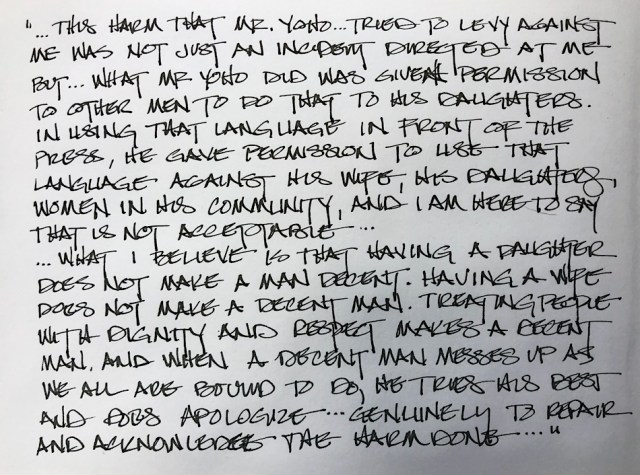 "... THIS HARM THAT MR. YOHO... TRIED TO LEVY AGAINST
ME WAS NOT JUST AN INCIDENT DIRECTED AT ME
BUT... WHAT MR YOHO DID WAS GIVEN PERMISSION
TO OTHER MEN TO DO THAT TO HIS DAUGHTERS.
IN USING THAT LANGUAGE IN FRONT OF THE
PRESS, HE GAVE PERMISSION TO USE THAT
LANGUAGE AGAINST HIS WIFE, HIS DAUGHTERS,
WOMEN IN HIS COMMUNITY, AND I AM HERE TO SAY
THAT IS NOT ACCEPTABLE ...
... WHAT I BELIEVE IS THAT HAVING A DAUGHTER
DOES NOT MAKE A MAN DECENT. HAVING A WIFE
DOES NOT MAKE A DECENT MAN. TREATING PEOPLE
WITH DIGNITY AND RESPECT MAKES A DECENT
MAN, AND WHEN A DECENT MAN MESSES UP AS
WE ALL ARE BOUND TO DO, HE TRIES HIS BEST
AND DOES APOLOGIZE ... GENUINELY TO REPAIR
AND ACKNOWLEDGE THE HARM DONE ..."